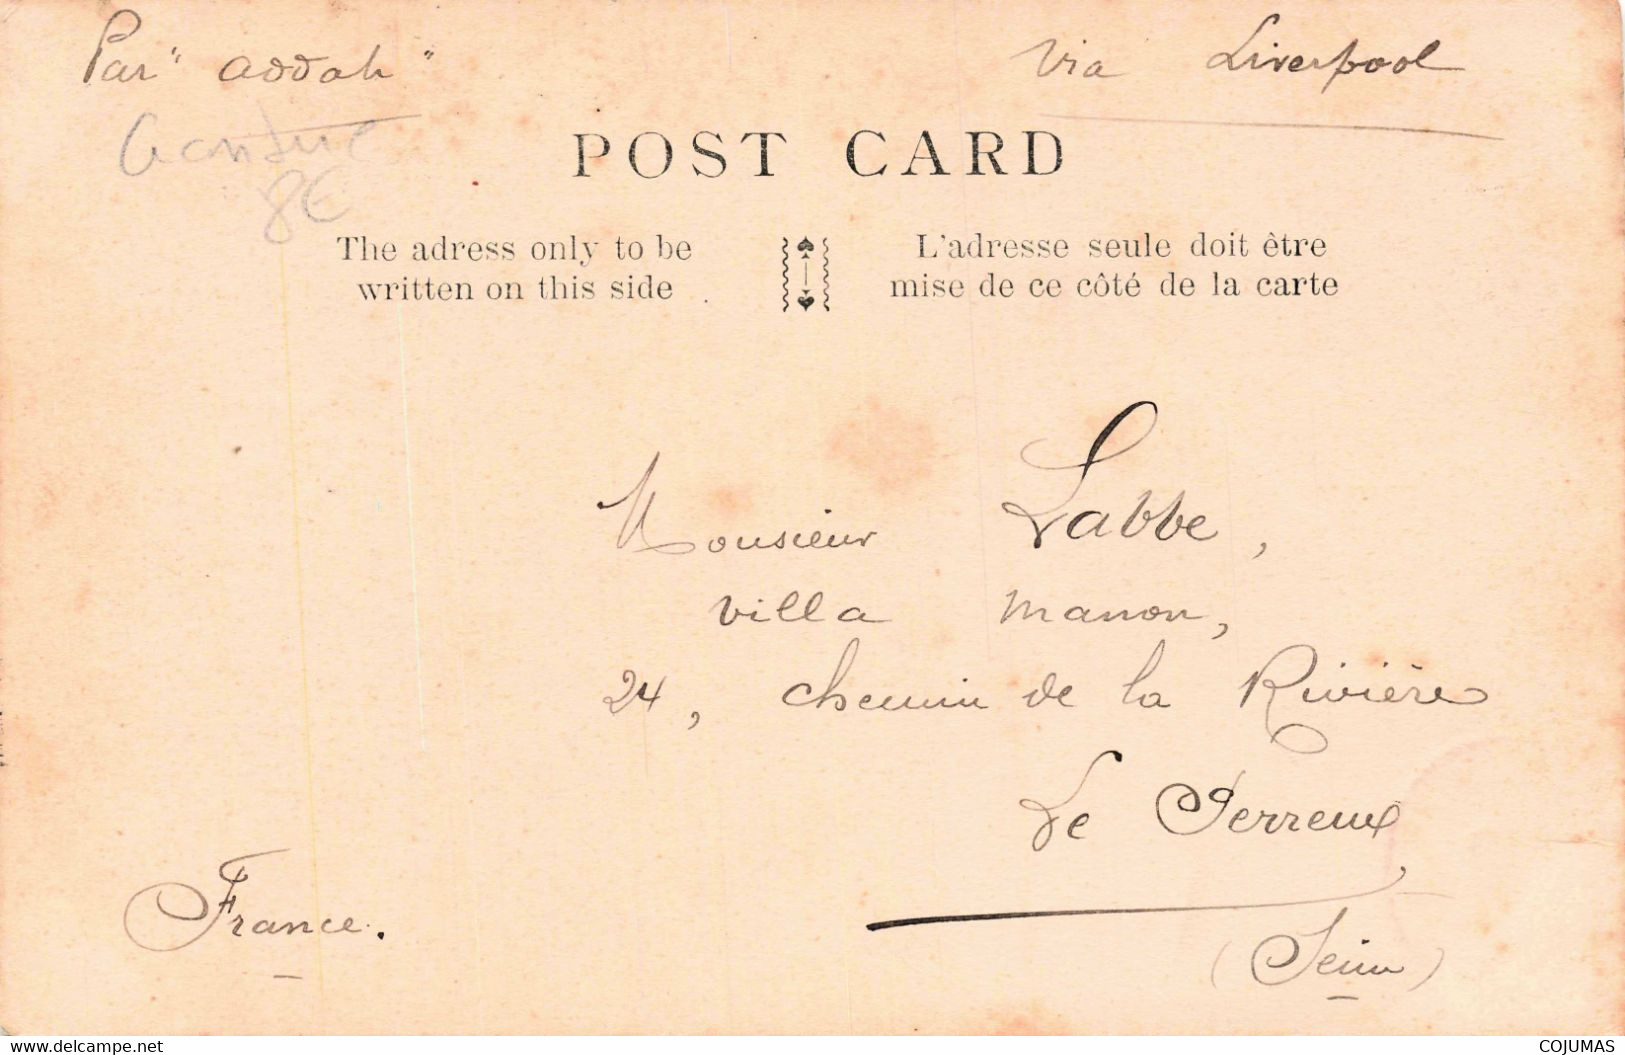 Par "addah" via Liverpool
8€
POST CARD
The adress only to be
written on this side
L'adresse seule doit être
mise de ce côté de la carte
Monsieur Labbe,
villa manon,
24, chemin de la Rivière
Le Perreux,
(Seine)
France.
www.delcampe.net
COJUMAS